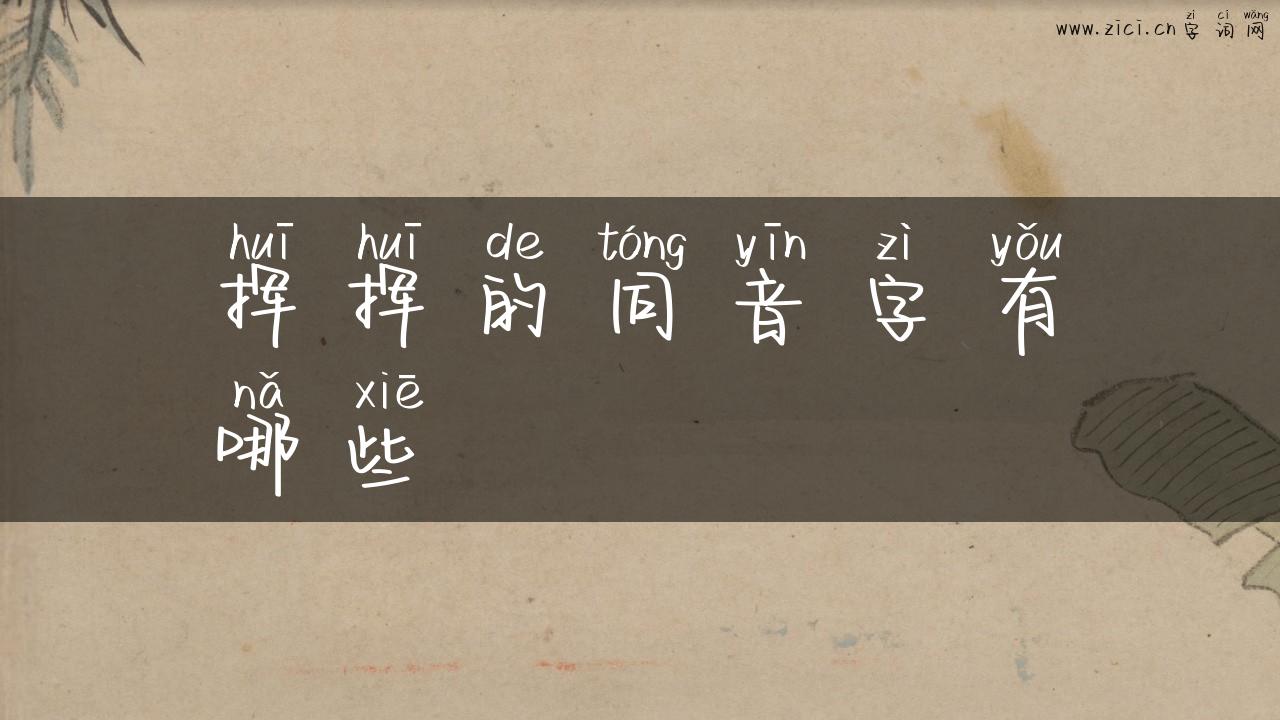 zì cí wǎng
www.zici.cn 字词网
huī huī de tóng yīn zì yǒu
挥挥的同音字有
nǎ xiē
哪些